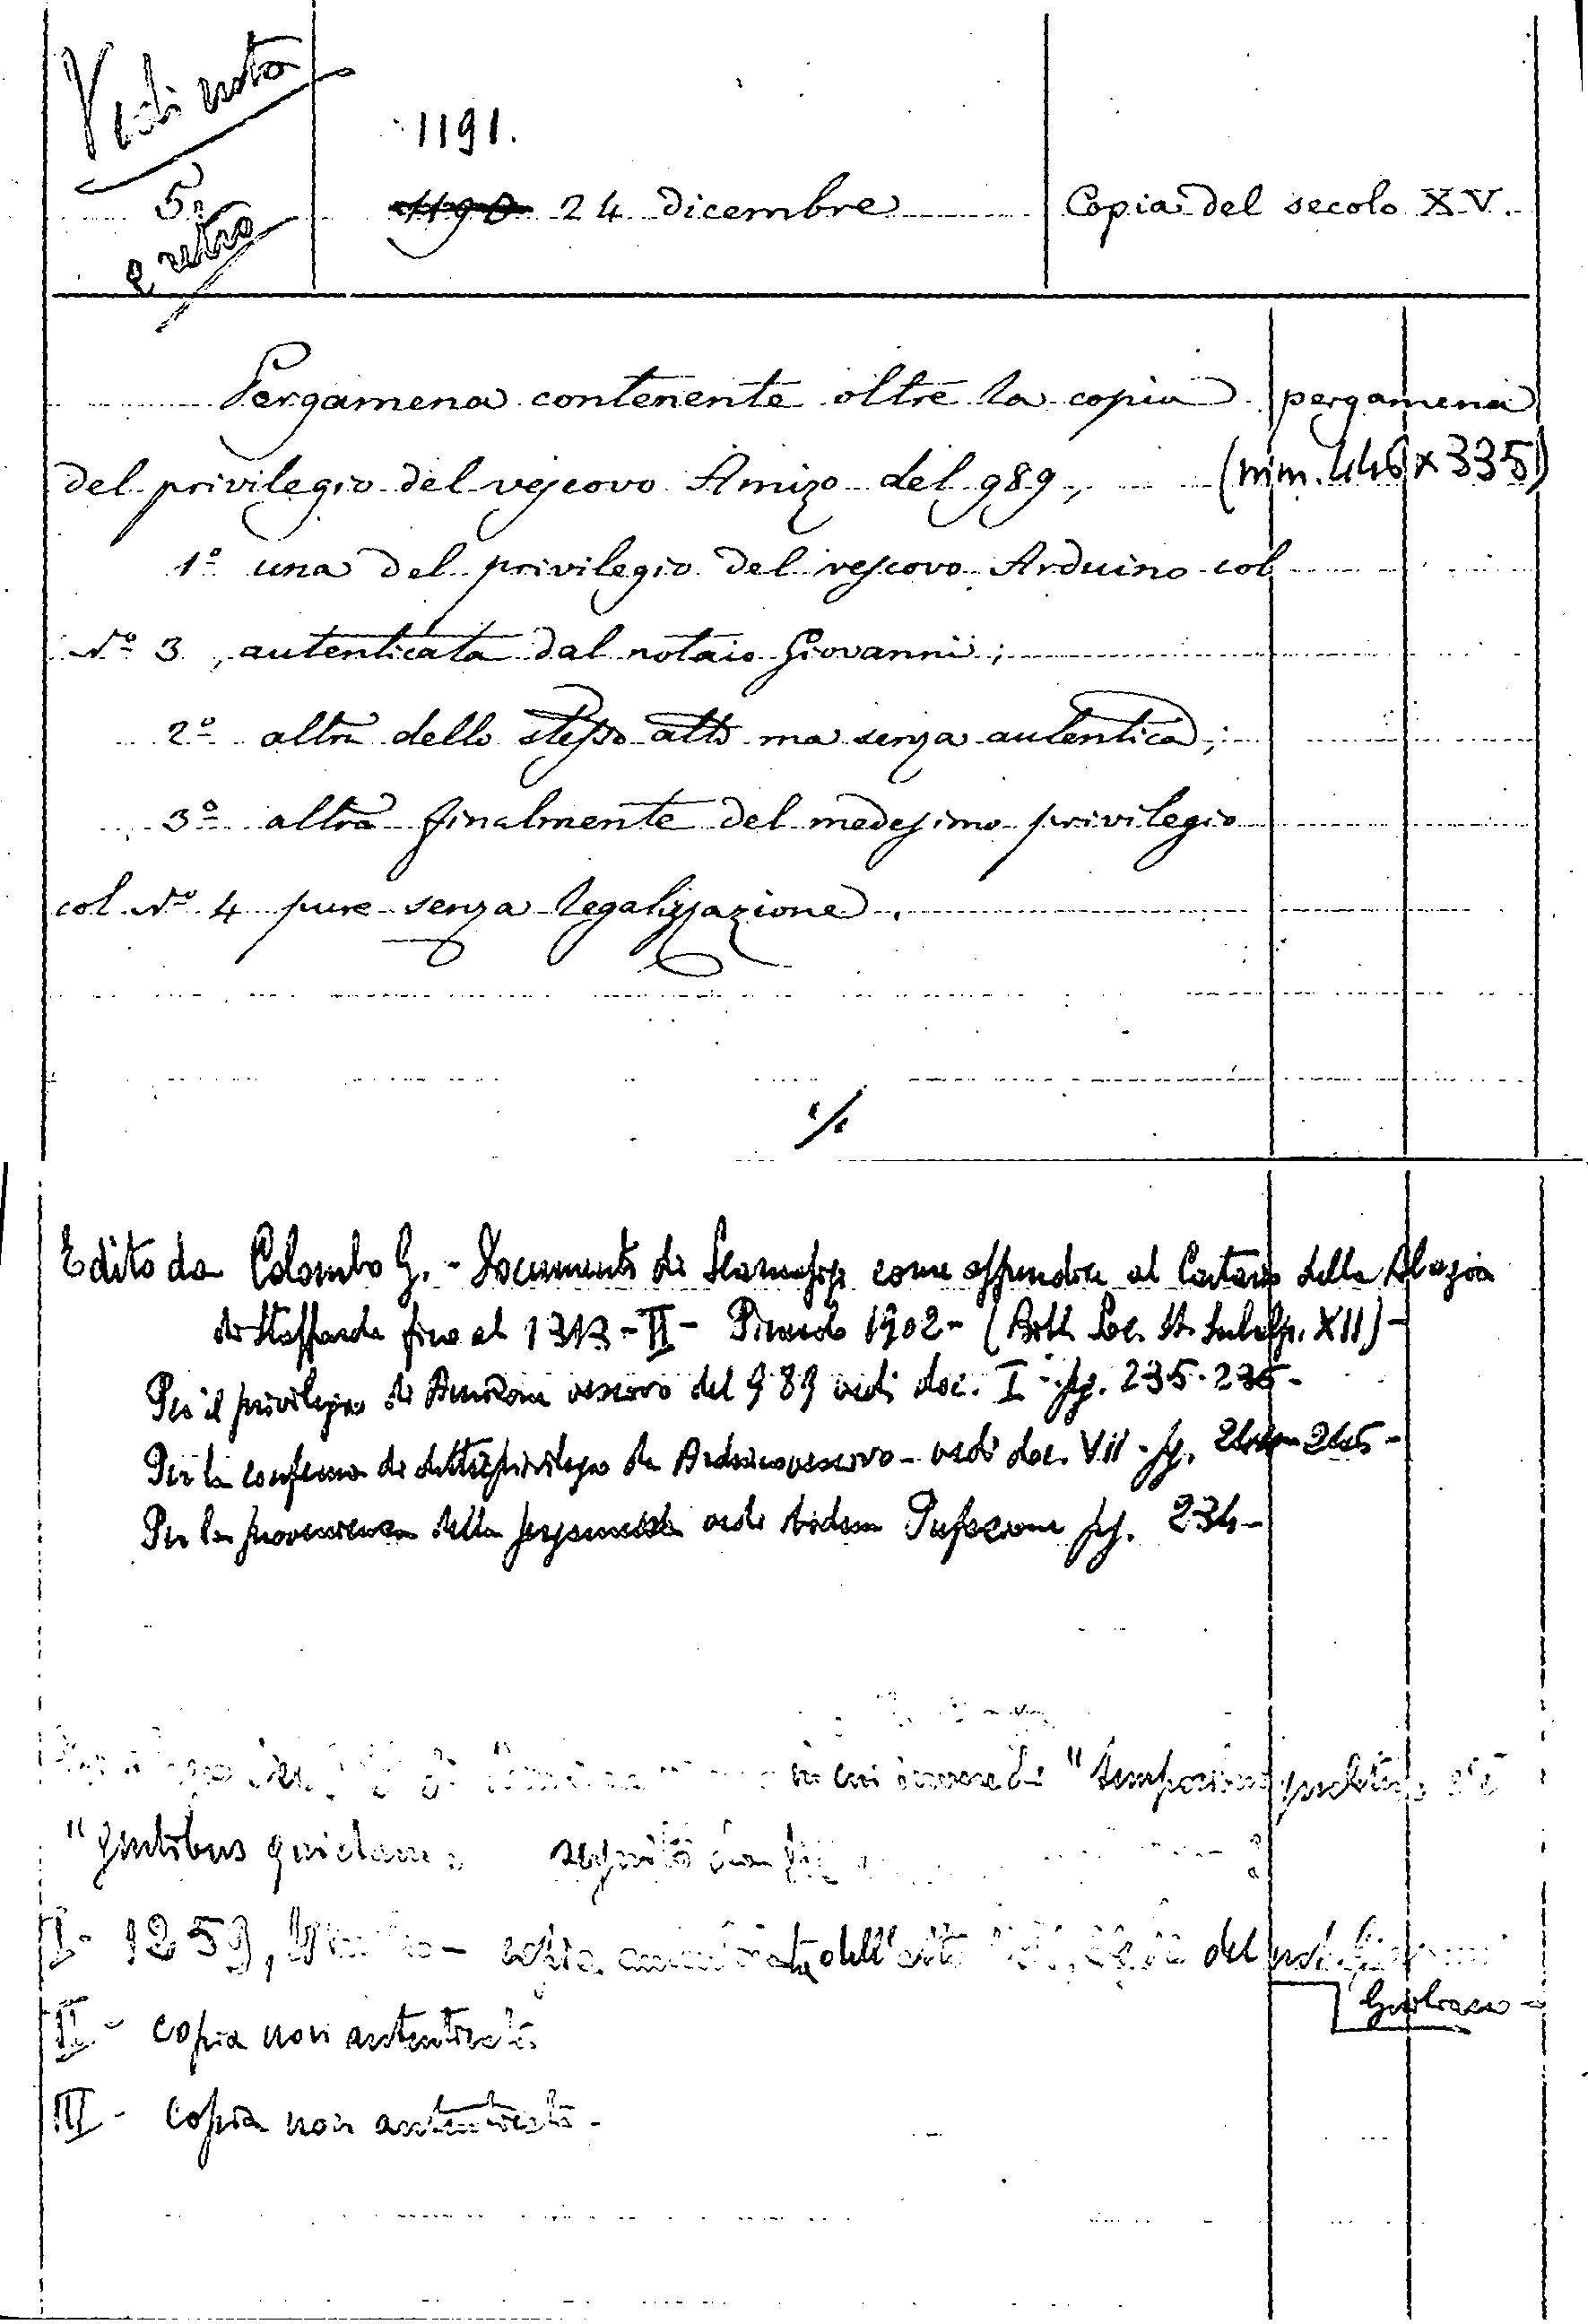 Vedi nota
5,
e retro
1191.
1190 24 dicembre
Copia del secolo XV.
Pergamena contenente oltre la copia
pergamena
del privilegio del vescovo Amizo del 989,
(mm. 446 x 335)
1º una del privilegio del vescovo Arduino col
Nº 3, autenticata dal notaio Giovanni;
2º altra dello stesso atto ma senza autentica;
3º altra finalmente del medesimo privilegio
col Nº 4 pure senza legalizzazione.
./.
Edito da Colombo G. - Documenti di Scarnafigi come appendice al Cartario della Abazia
di Staffarda fino al 1313 - II - Pinerolo 1902 - (Boll. Soc. St. Subalp. XII) -
Per il privilegio di Amizone vescovo del 989 vedi doc. I - pg. 235-236 -
Per la conferma di detto privilegio da vescovo - vedi doc. VII - pg. 244-245 -
Per la provenienza della pergamena vedi Prefazione pg. 234 -
in cui "temporibus
"gentibus quietam seguito
I - 1259, copia autenticata dell'atto del not.
II - copia non autenticata
III - copia non autenticata -